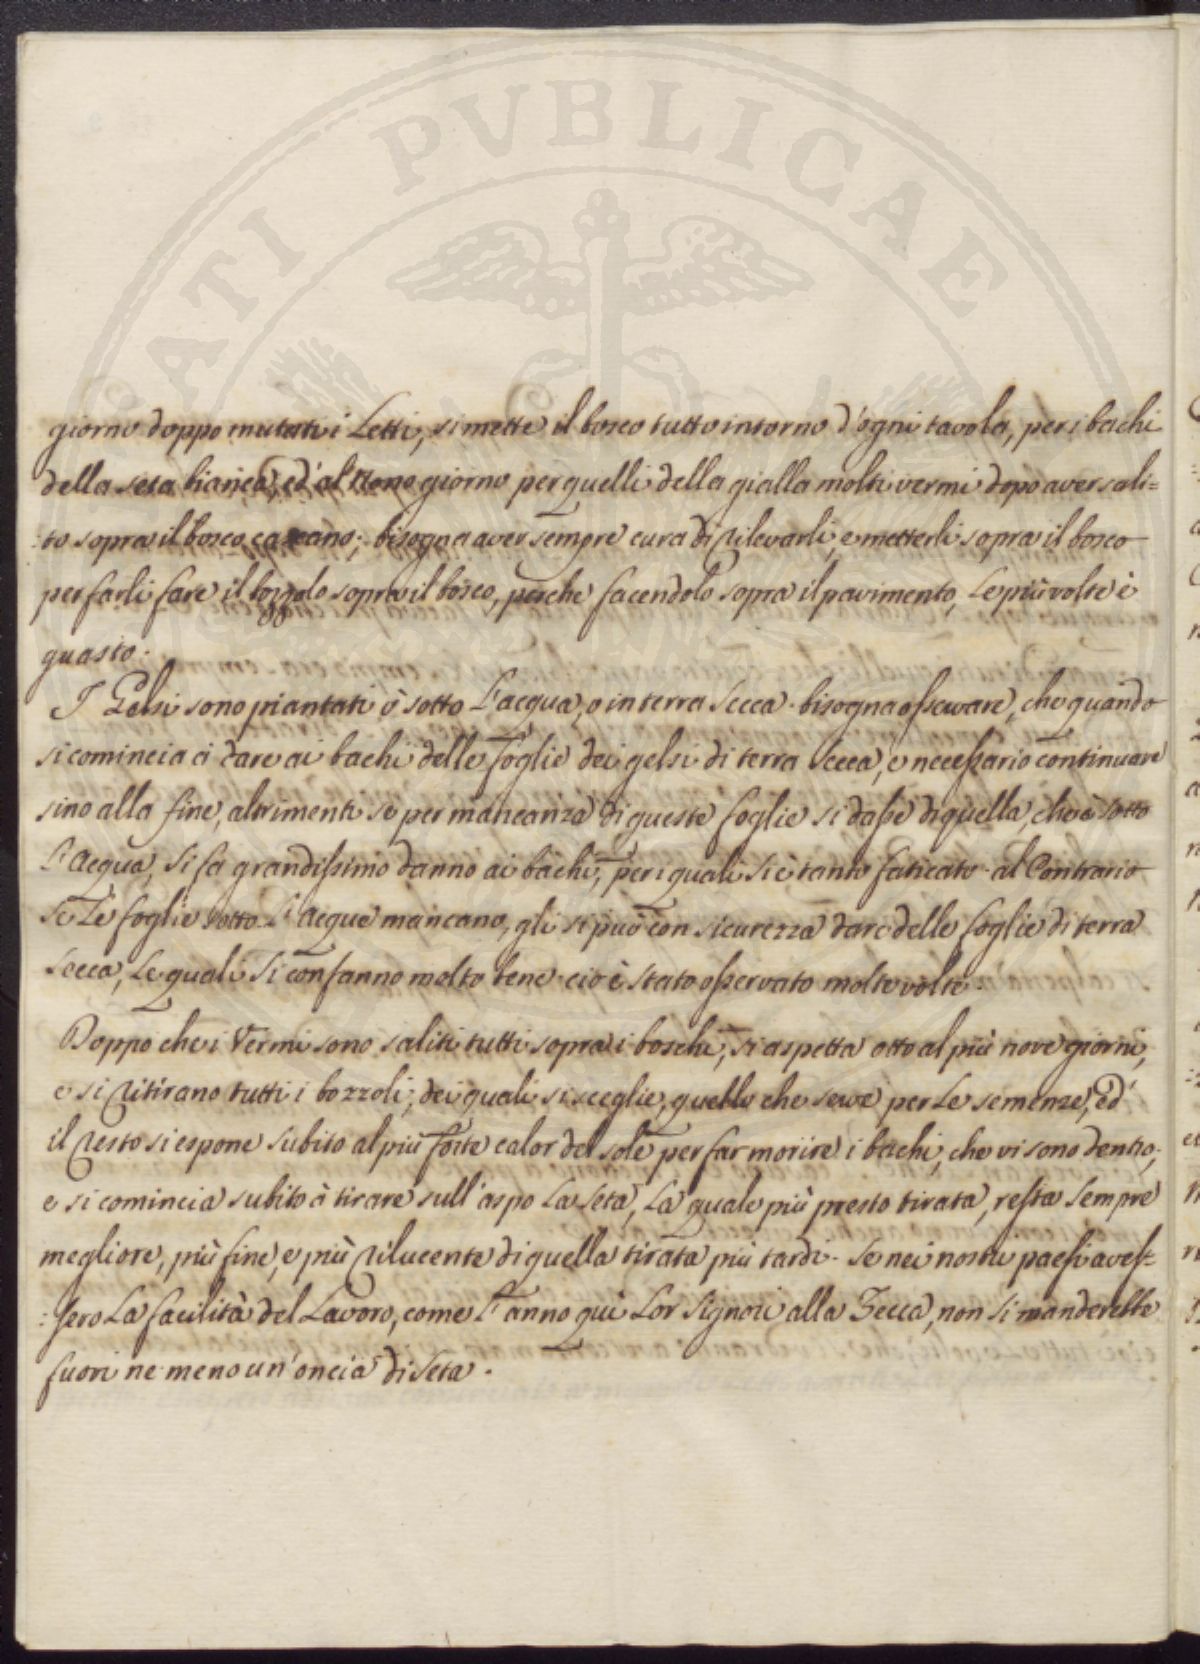 PVBLICAE
giorno doppo mutati i Letti, si mette il bosco tutto intorno d'ogni tavola, per i bachi
della seta bianca, ed' al nono giorno per quelli della gialla molti vermi dopo aver sali=
:to sopra il bosco cascano; bisogna aver sempre cura di rilevarli, e metterli sopra il bosco
per farli fare il bozzolo sopra il bosco, perche facendolo sopra il pavimento, le più volte è
guasto.
I Gelsi sono piantati ò sotto l'acqua, o in terra secca. bisogna osservare, che quando
si comincia a dare ai bachi delle foglie dei gelsi di terra secca, e necessario continuare
sino alla fine, altrimenti se per mancanza di queste foglie si dasse di quella, che è sotto
l'Acqua, si fa grandissimo danno ai bachi, per i quali si è tanto faticato. al Contrario
se Le foglie sotto l'acqua mancano, gli si può con sicurezza dare delle foglie di terra
secca, Le quali si confanno molto bene. ciò è stato osservato molte volte.
Doppo che i Vermi sono saliti tutti sopra i boschi, si aspetta otto al più nove giorni,
e si ritirano tutti i bozzoli, dei quali si sceglie, quello che serve per Le semenze, ed'
il resto si espone subito al più forte calor del sole per far morire i bachi, che vi sono dentro;
e si comincia subito à tirare sull'aspo La seta, La quale più presto tirata, resta sempre
megliore, più fine, e più rilucente di quella tirata più tardi. Se nei nostri paesi aves=
:sero La facilità del Lavoro, come l'anno qui Lor Signori alla Zecca, non si manderebbe
fuori ne meno un'oncia di seta.